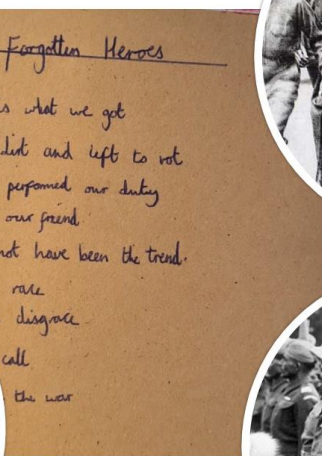 Forgotten Heroes
s what we got
dirt and left to rot
performed our duty
our friend
not have been the trend.
race
disgrace
call
the war